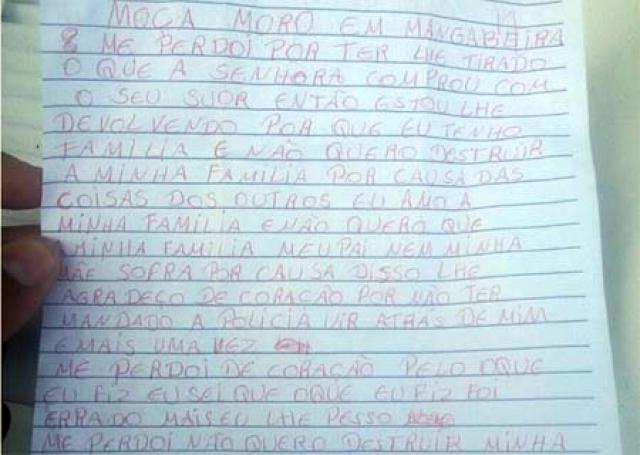 MOÇA MORO EM MANGABEIRA
ME PERDOI POR TER LHE TIRADO
O QUE A SENHORA COMPROU COM
O SEU SUOR ENTÃO ESTOU LHE
DEVOLVENDO POR QUE EU TENHO
FAMILIA E NÃO QUERO DESTRUIR
A MINHA FAMILIA POR CAUSA DAS
COISAS DOS OUTROS EU AMO A
MINHA FAMILIA E NÃO QUERO QUE
A MINHA FAMILIA MEU PAI NEM MINHA
MÃE SOFRA POR CAUSA DISSO LHE
AGRADEÇO DE CORAÇÃO POR NÃO TER
MANDADO A POLICIA VIR ATRÁS DE MIM
E MAIS UMA VEZ
ME PERDOI DE CORAÇÃO PELO OQUE
EU FIZ EU SEI QUE OQUE EU FIZ FOI
ERRADO MAIS EU LHE PESSO
ME PERDOI NÃO QUERO DESTRUIR MINHA